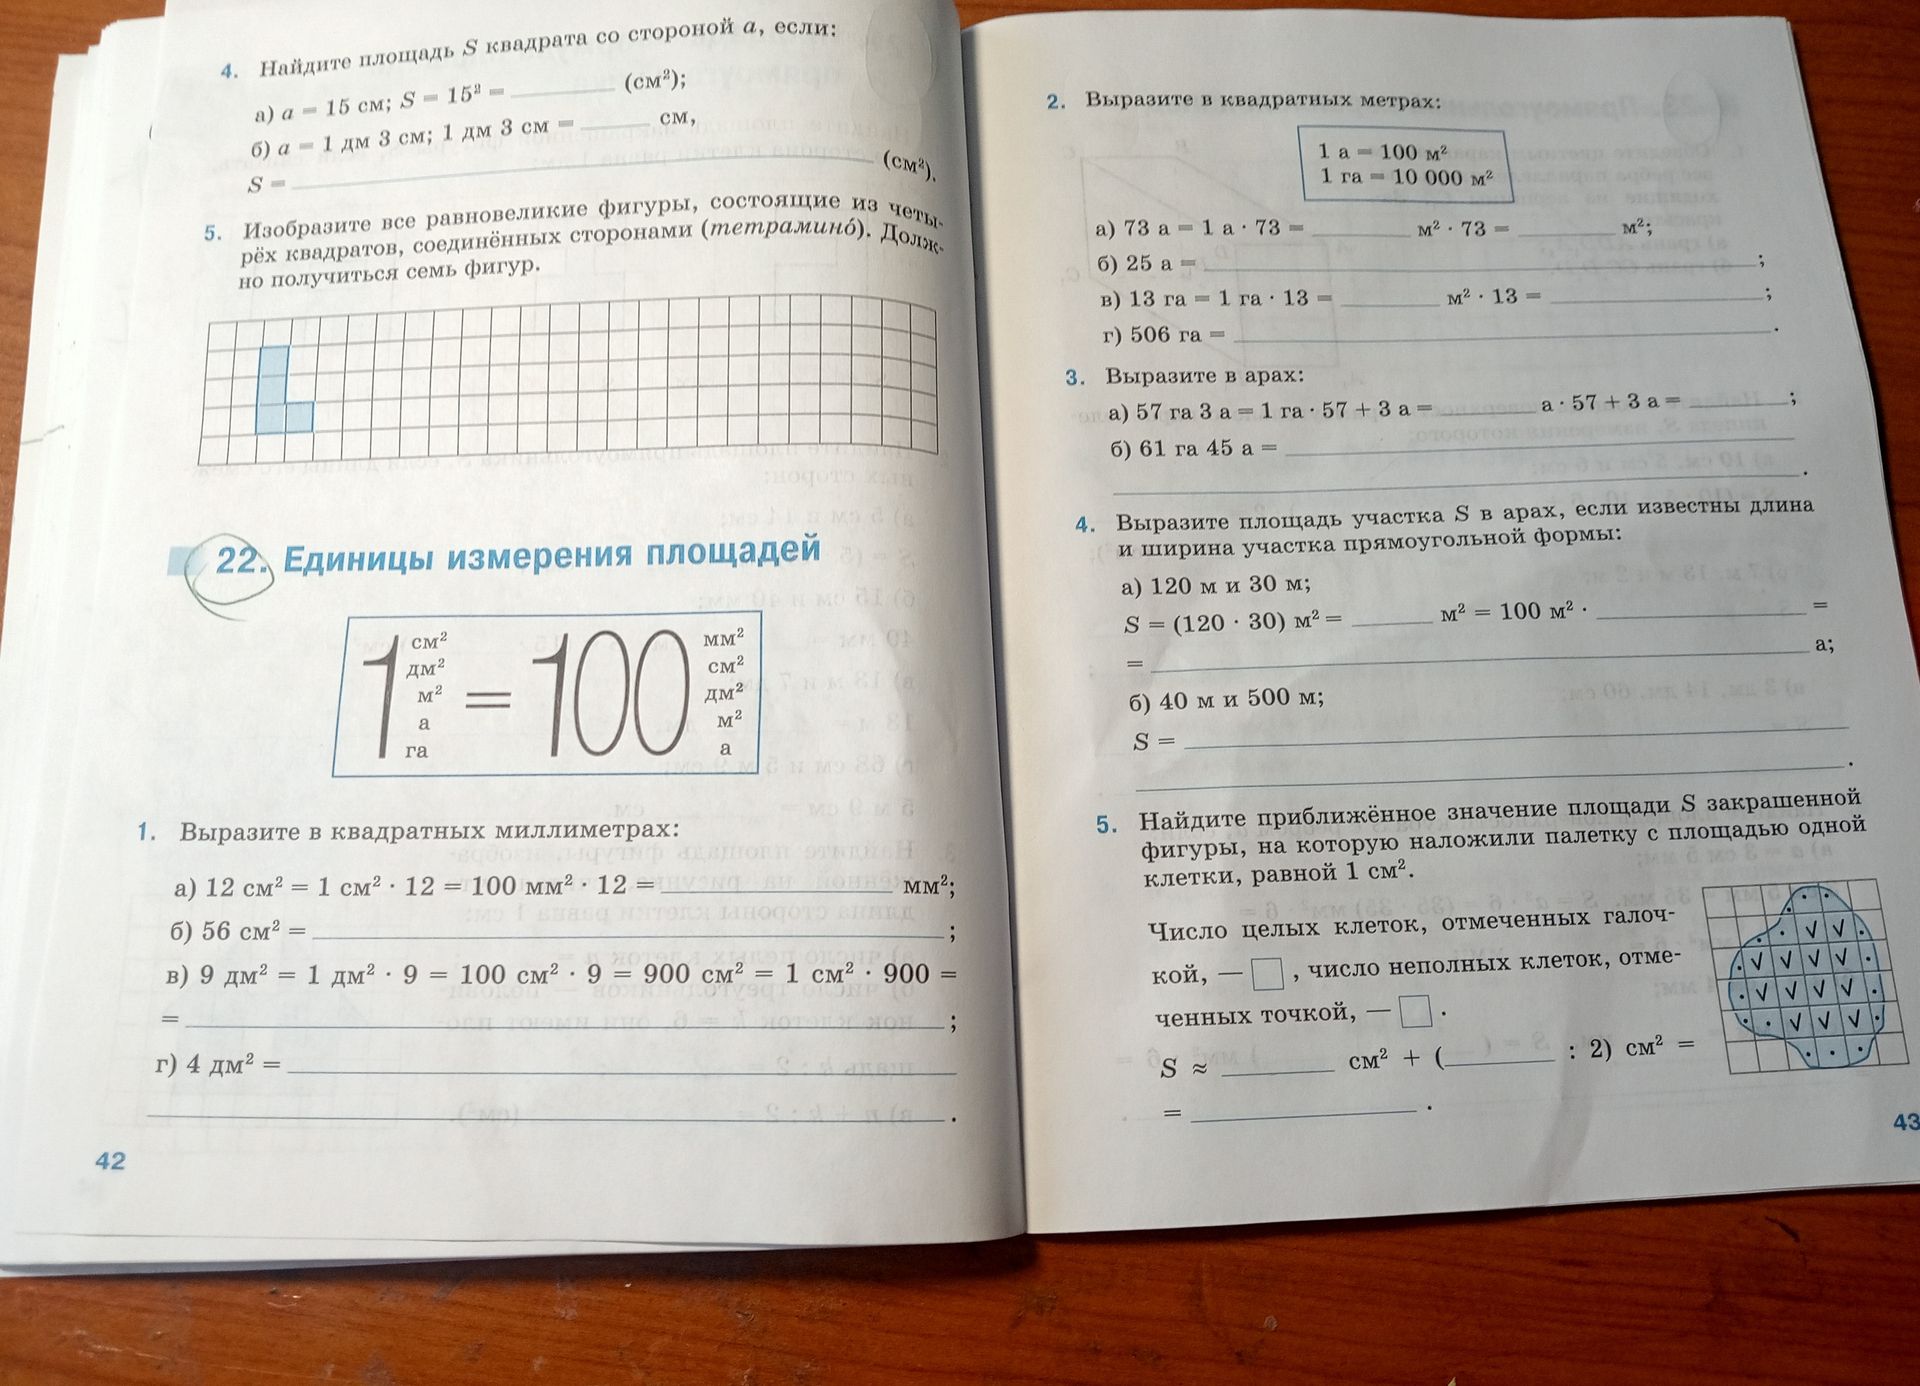 4. Найдите площадь S квадрата со стороной a, если:
а) a = 15 см; S = 15² = ________ (см²);
б) a = 1 дм 3 см; 1 дм 3 см = ______ см,
S = ________ (см²).
5. Изобразите все равновеликие фигуры, состоящие из четы-
рёх квадратов, соединённых сторонами (тетрамино́). Долж-
но получиться семь фигур.
22. Единицы измерения площадей
1 см² дм² м² а га = 100 мм² см² дм² м² а
1. Выразите в квадратных миллиметрах:
а) 12 см² = 1 см² · 12 = 100 мм² · 12 = ________ мм²;
б) 56 см² = ________ ;
в) 9 дм² = 1 дм² · 9 = 100 см² · 9 = 900 см² = 1 см² · 900 =
= ________ ;
г) 4 дм² = ________
________ .
42
2. Выразите в квадратных метрах:
1 а = 100 м²
1 га = 10 000 м²
а) 73 а = 1 а · 73 = ________ м² · 73 = ________ м²;
б) 25 а = ________ ;
в) 13 га = 1 га · 13 = ________ м² · 13 = ________ ;
г) 506 га = ________ .
3. Выразите в арах:
а) 57 га 3 а = 1 га · 57 + 3 а = ________ а · 57 + 3 а = ________ ;
б) 61 га 45 а = ________
________ .
4. Выразите площадь участка S в арах, если известны длина
и ширина участка прямоугольной формы:
а) 120 м и 30 м;
S = (120 · 30) м² = ______ м² = 100 м² · ________ =
= ________ а;
б) 40 м и 500 м;
S = ________
________ .
5. Найдите приближённое значение площади S закрашенной
фигуры, на которую наложили палетку с площадью одной
клетки, равной 1 см².
Число целых клеток, отмеченных галоч-
кой, — □ , число неполных клеток, отме-
ченных точкой, — □ .
S ≈ ________ см² + (________ : 2) см² =
= ________ .
43